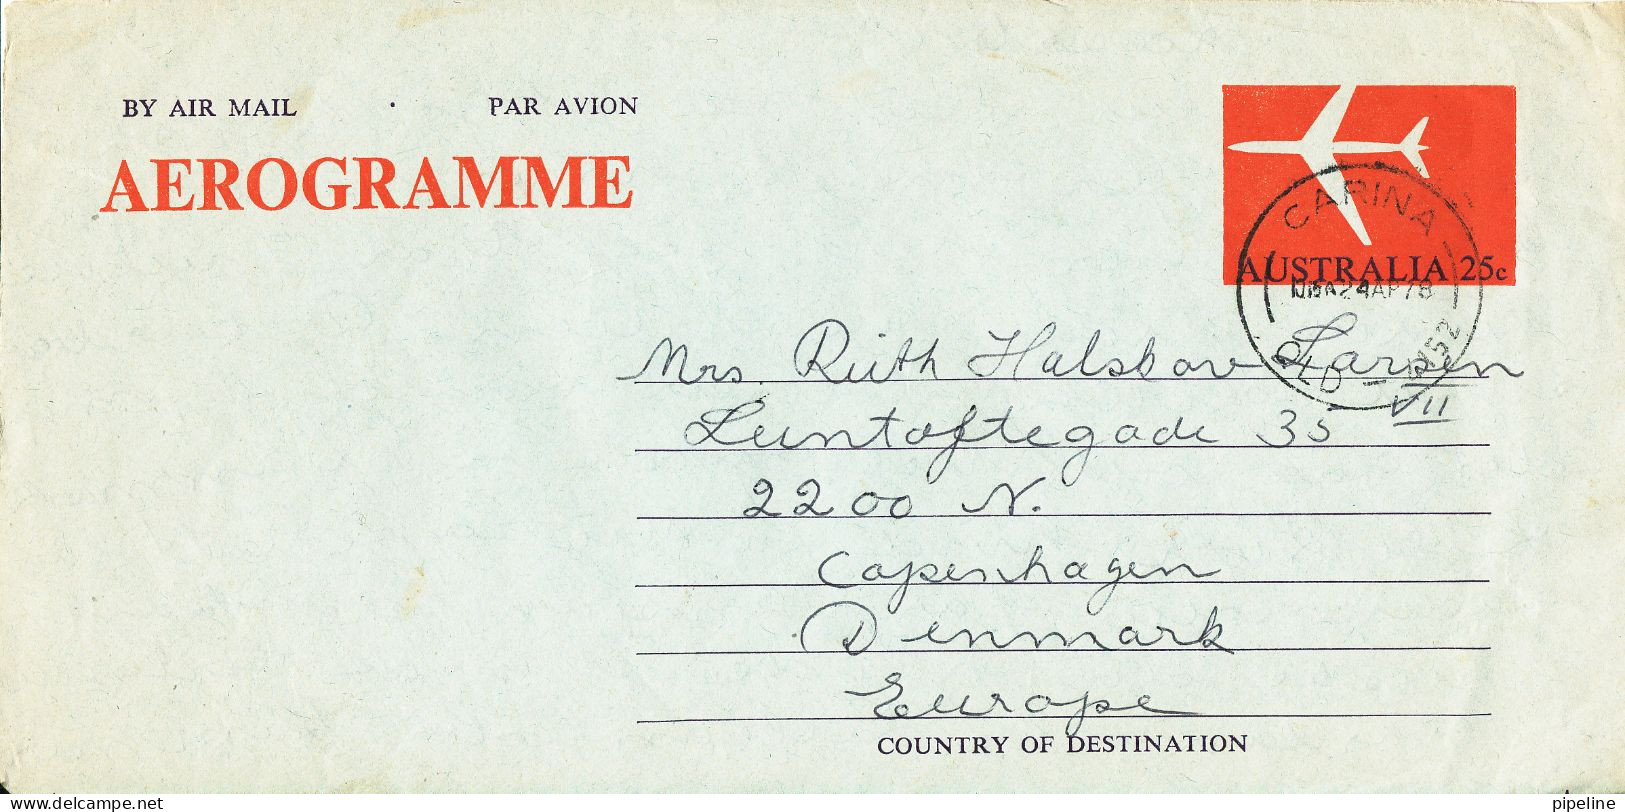 BY AIR MAIL · PAR AVION
AEROGRAMME
AUSTRALIA 25c
CARINA
24AP78
QLD
Mrs. Ruth Halskov Larsen
Luntoftegade 35 VII
2200 N.
Copenhagen
Denmark
Europe
COUNTRY OF DESTINATION
delcampe.net
pipeline